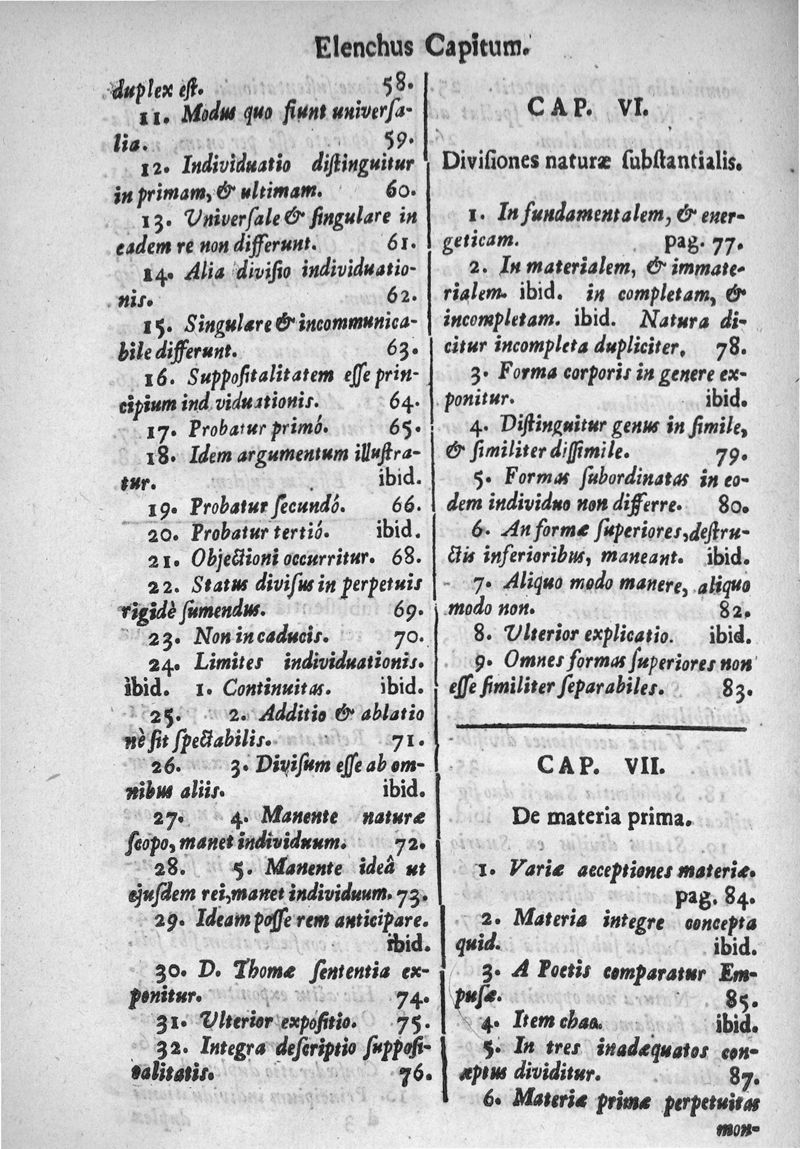 Elenchus Capitum.
duplex eſt. 58.
11. Modus quo fiunt univerſa-
lia. 59.
12. Individuatio diſtinguitur
in primam, & ultimam. 60.
13. Univerſale & ſingulare in
eadem re non differunt. 61.
14. Alia diviſio individuatio-
nis. 62.
15. Singulare & incommunica-
bile differunt. 63.
16. Suppoſitalitatem eſſe prin-
cipium ind viduationis. 64.
17. Probatur primó. 65.
18. Idem argumentum illuſtra-
tur. ibid.
19. Probatur ſecundó. 66.
20. Probatur tertió. ibid.
21. Objectioni occurritur. 68.
22. Status diviſus in perpetuis
rigidè ſumendus. 69.
23. Non in caducis. 70.
24. Limites individuationis.
ibid. 1. Continuitas. ibid.
25. 2. Additio & ablatio
nè ſit ſpectabilis. 71.
26. 3. Diviſum eſſe ab om-
nibus aliis. ibid.
27. 4. Manente naturæ
ſcopo, manet individuum. 72.
28. 5. Manente ideâ ut
ejuſdem rei, manet individuum. 73.
29. Ideam poſſe rem anticipare.
ibid.
30. D. Thomæ ſententia ex-
ponitur. 74.
31. Ulterior expoſitio. 75.
32. Integra deſcriptio ſuppoſi-
talitatis. 76.
CAP. VI.
Diviſiones naturæ ſubſtantialis.
1. In fundamentalem, & ener-
geticam. pag. 77.
2. In materialem, & immate-
rialem. ibid. in completam, &
incompletam. ibid. Natura di-
citur incompleta dupliciter. 78.
3. Forma corporis in genere ex-
ponitur. ibid.
4. Diſtinguitur genus in ſimile,
& ſimiliter diſſimile. 79.
5. Formas ſubordinatas in eo-
dem individuo non differre. 80.
6. An formæ ſuperiores, deſtru-
ctis inferioribus, maneant. ibid.
7. Aliquo modo manere, aliquo
modo non. 82.
8. Ulterior explicatio. ibid.
9. Omnes formas ſuperiores non
eſſe ſimiliter ſeparabiles. 83.
CAP. VII.
De materia prima.
1. Variæ aeceptiones materiæ.
pag. 84.
2. Materia integre concepta
quid. ibid.
3. A Poetis comparatur Em-
puſæ. 85.
4. Item chao. ibid.
5. In tres inadæquatos con-
æptus dividitur. 87.
6. Materiæ primæ perpetuitas
mon-